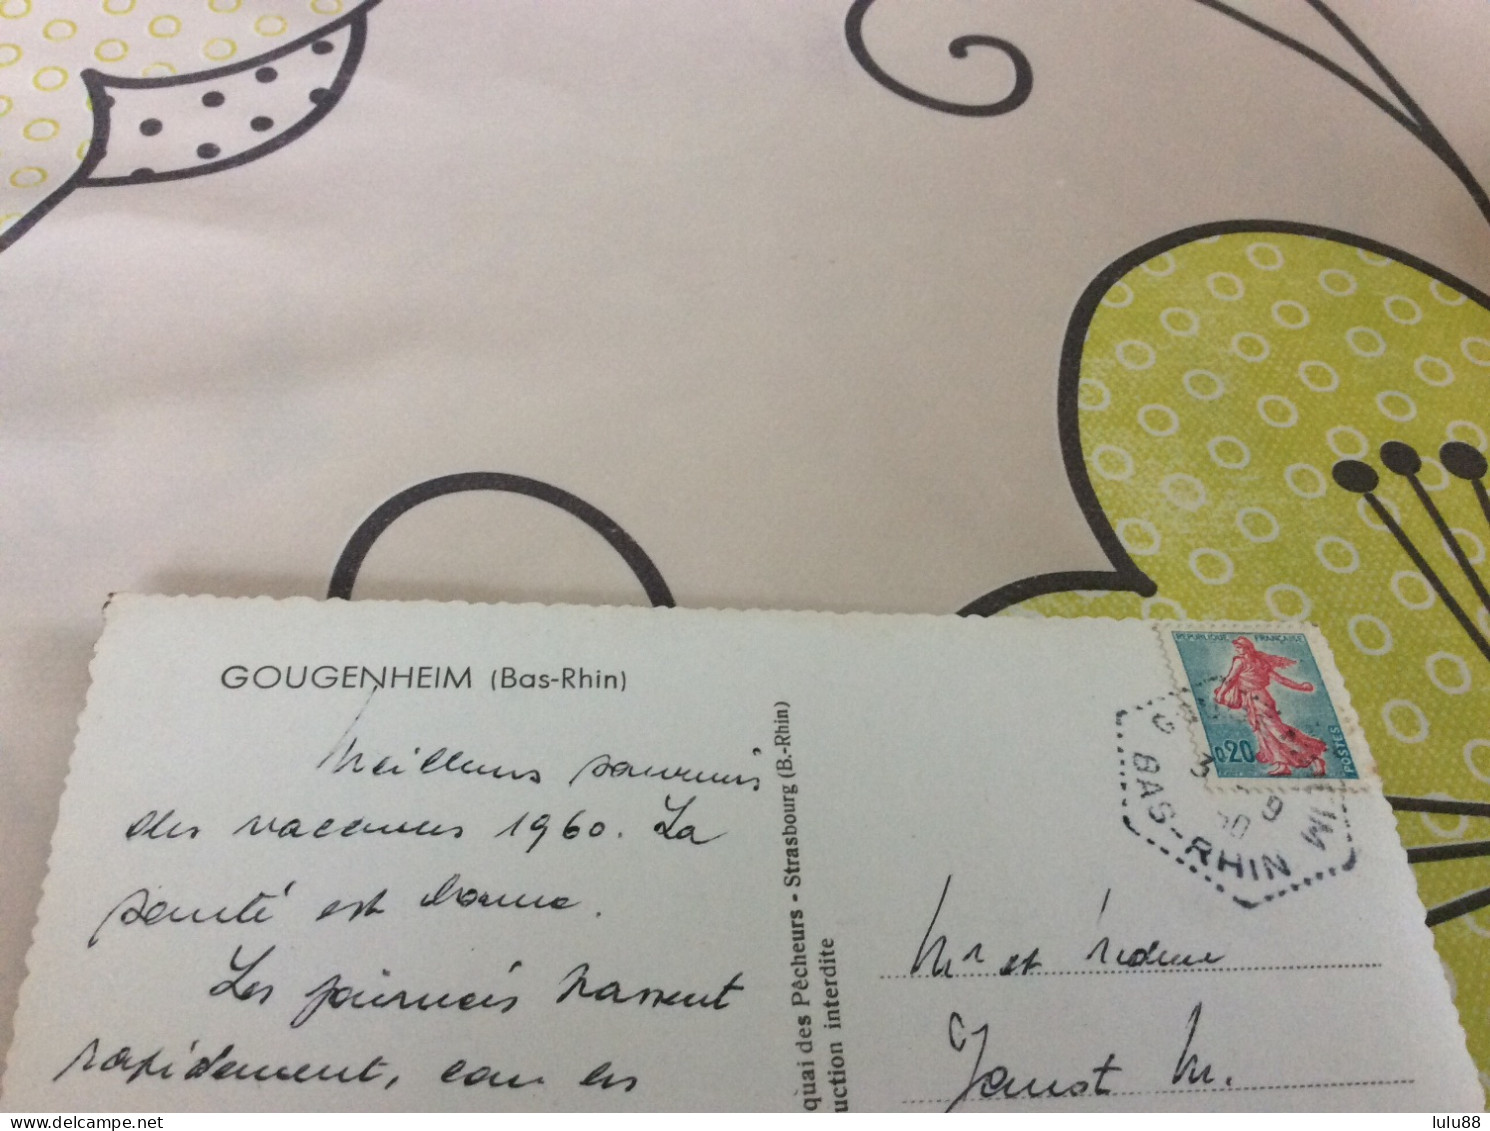 GOUGENHEIM (Bas-Rhin)
Meilleurs souvenirs
des vacances 1960. La
santé est bonne.
Les journées passent
rapidement, car les
quai des Pêcheurs - Strasbourg (B.-Rhin)
uction interdite
REPUBLIQUE FRANÇAISE
0,20
POSTES
BAS-RHIN
Mr et
Janot M.
lulu88